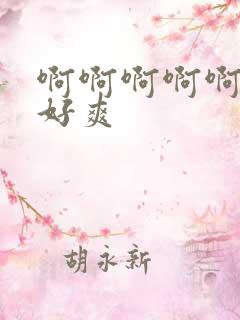 啊啊啊啊啊
好爽
胡永新